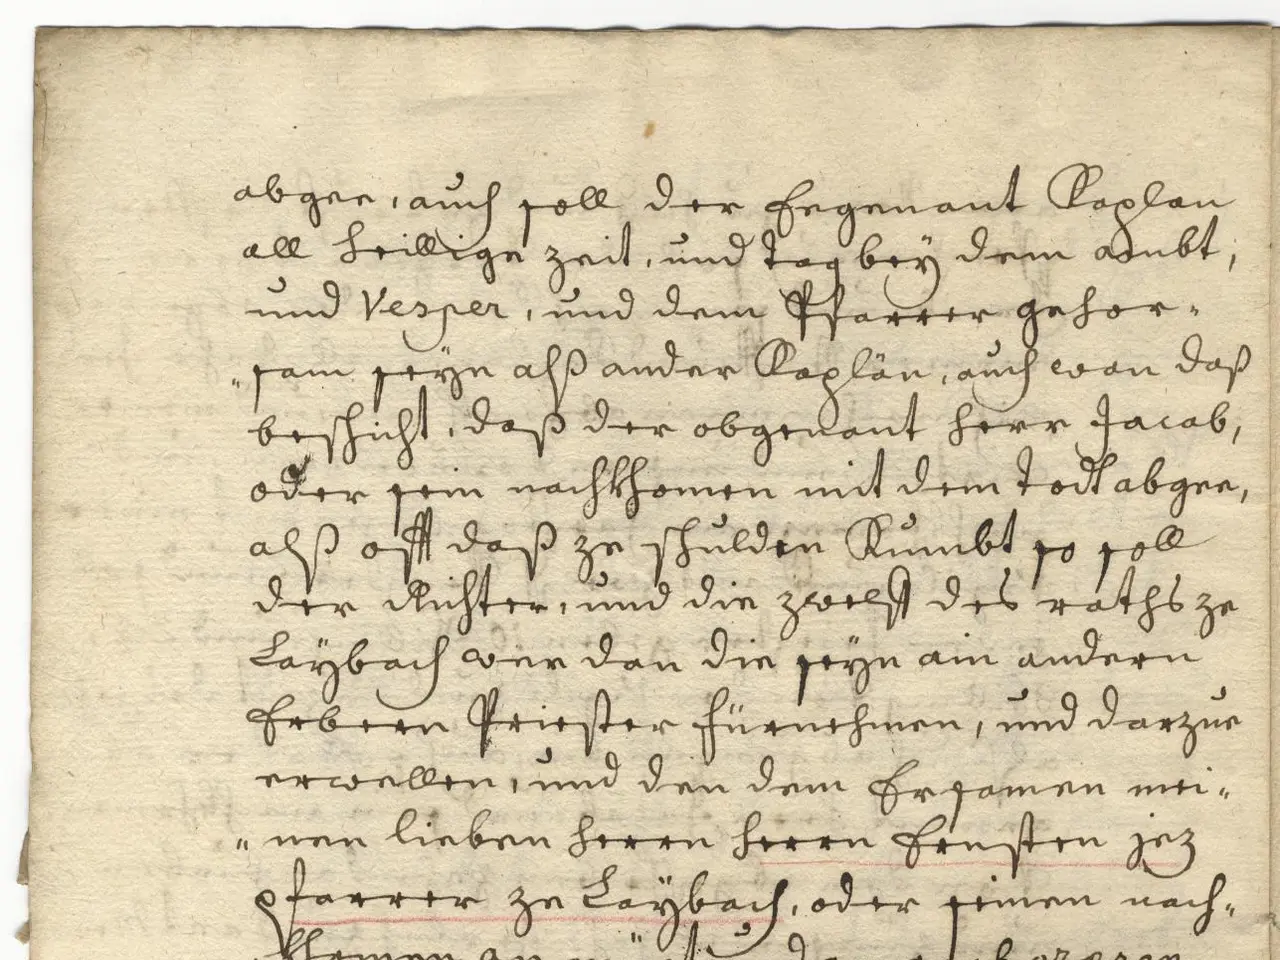 abgee, auch soll der Eegenant Kaplan
all heillige zeit, und tag bey dem ambt,
und Vesper, und dem Pfarrer gehor-
"sam seyn alß ander Kaplän, auch wan daß
beschicht, daß der obgenant herr Jacob,
oder sein nachkhomen mit dem todt abgee,
alß offt daß ze schulden Kumbt so soll
der Richter, und die zwelff des raths ze
Laybach wer dan die seyn ain andern
Erbern Priester fürnehmen, und darzue
erwellen, und den dem Ersamen mei-
"nen lieben herrn herrn Ernsten jez
pfarrer ze Laybach, oder seinen nach-